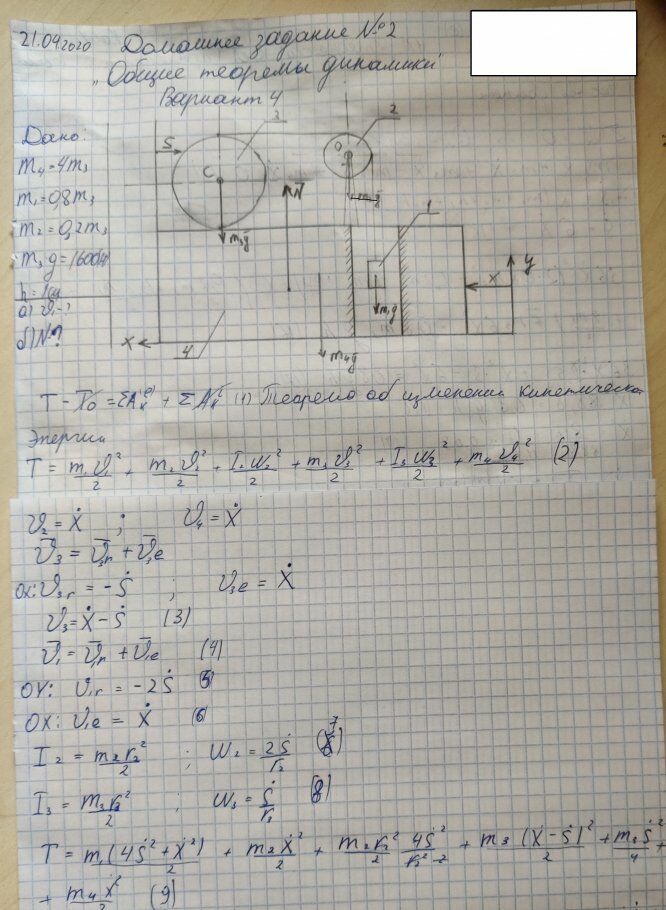 21.04.2020 Домашнее задание №2
„Общие теоремы динамики"
Вариант 4
Дано:
m₄=4m₃
m₁=0,8m₃
m₂=0,2m₃
m₃g=1600Н
h=1м
а) ϑ₁-?
б) N-?
S
3
C
m₃g̅
N̅
O
2
m₂g̅
1
m₁g̅
X
y
X
4
m₄g̅
T - T₀ = ΣAₖ⁽ᵉ⁾ + ΣAₖⁱ (1) Теорема об изменении кинетической
Энергии
T = m₁ϑ₁²/2 + m₂ϑ₂²/2 + I₂ω₂²/2 + m₃ϑ₃²/2 + I₃ω₃²/2 + m₄ϑ₄²/2 (2)
ϑ₂ = ẋ ; ϑ₄ = ẋ
ϑ̅₃ = ϑ̅₃r + ϑ̅₃e
OX: ϑ₃r = -Ṡ ; ϑ₃e = ẋ
ϑ₃ = ẋ - Ṡ (3)
ϑ̅₁ = ϑ̅₁r + ϑ̅₁e (4)
OY: ϑ₁r = -2Ṡ (5)
OX: ϑ₁e = ẋ (6)
I₂ = m₂r₂²/2 ; ω₂ = 2Ṡ/r₂ (7)
I₃ = m₃r₃²/2 ; ω₃ = Ṡ/r₃ (8)
T = m₁(4Ṡ²+ẋ²)/2 + m₂ẋ²/2 + m₂r₂²/2 4Ṡ²/r₂²·2 + m₃(ẋ-Ṡ)²/2 + m₃Ṡ²/4 +
+ m₄ẋ²/2 (9)